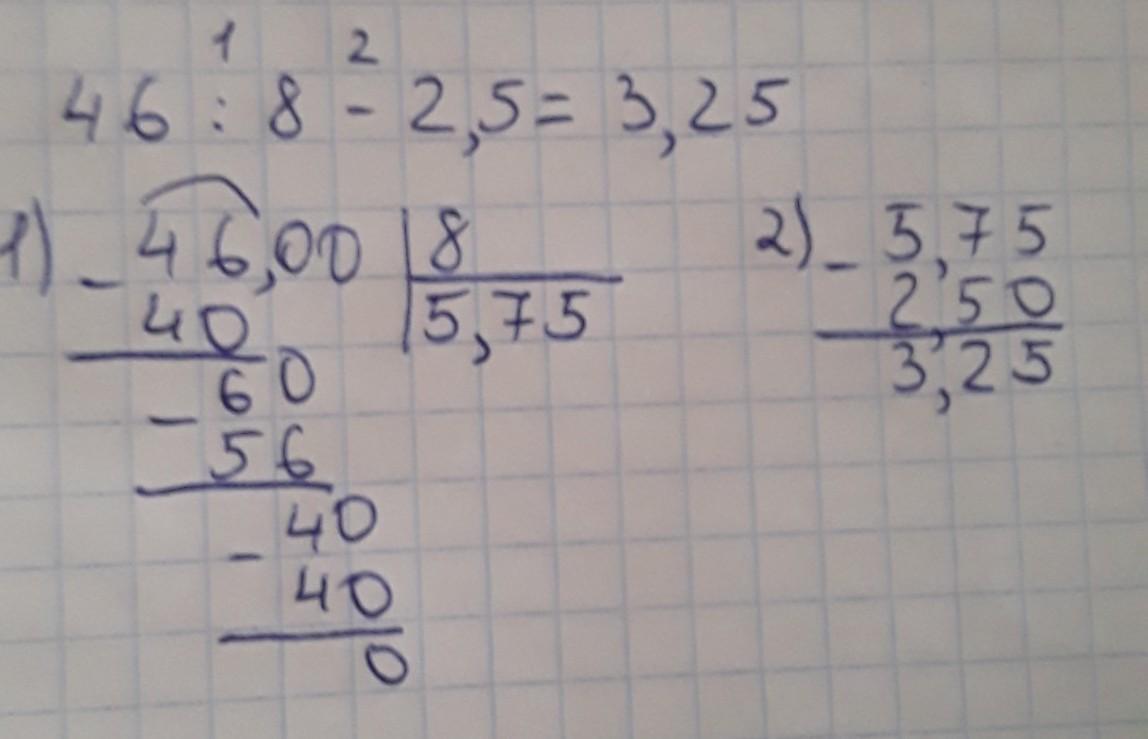 1 2
46 : 8 - 2,5 = 3,25
1) - 46,00 | 8
40 | 5,75
- 60
56
- 40
40
0
2) - 5,75
2,50
3,25